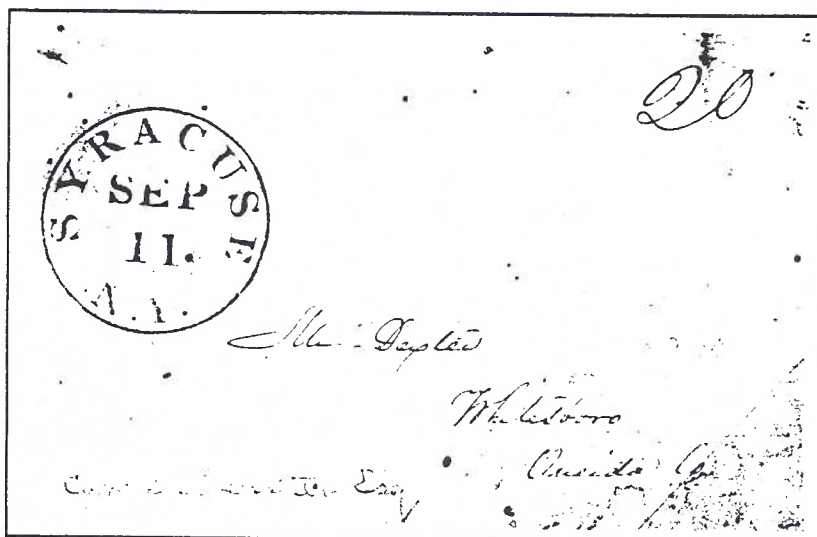 20
SYRACUSE
SEP
11.
N.Y.
Mr Dexter
Whitesboro
Oneida Co
Esq